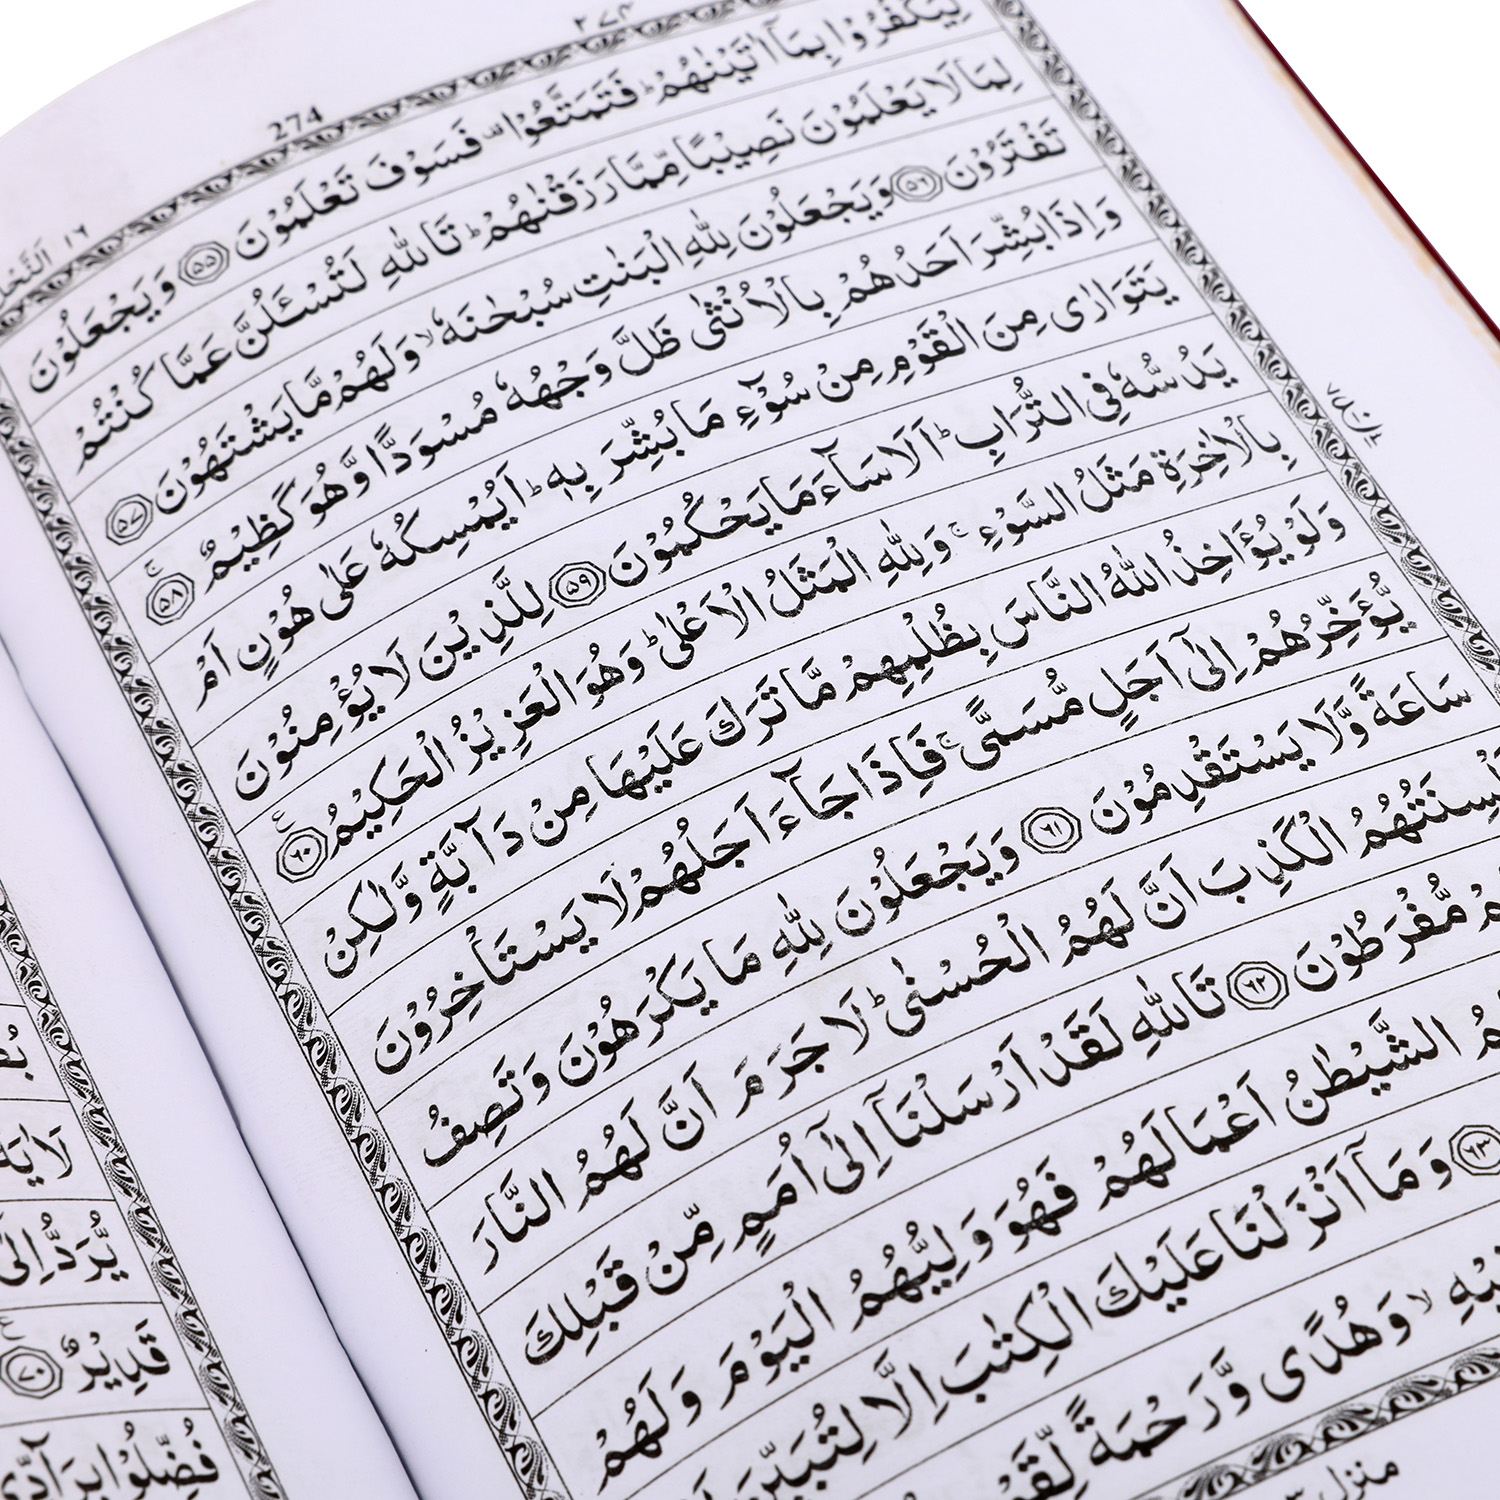 ٢٧٤
274
النحل ١٦
لِيَكْفُرُوْا بِمَاۤ اٰتَيْنٰهُمْ ؕ فَتَمَتَّعُوْا ۫ فَسَوْفَ تَعْلَمُوْنَ ﴿۵۵﴾ وَيَجْعَلُوْنَ
لِمَا لَا يَعْلَمُوْنَ نَصِيْبًا مِّمَّا رَزَقْنٰهُمْ ؕ تَاللّٰهِ لَتُسْـَٔلُنَّ عَمَّا كُنْتُمْ
تَفْتَرُوْنَ ﴿۵۶﴾ وَيَجْعَلُوْنَ لِلّٰهِ الْبَنٰتِ سُبْحٰنَهٗ ۙ وَلَهُمْ مَّا يَشْتَهُوْنَ ﴿۵۷﴾
وَاِذَا بُشِّرَ اَحَدُهُمْ بِالْاُنْثٰى ظَلَّ وَجْهُهٗ مُسْوَدًّا وَّهُوَ كَظِيْمٌ ۚ ﴿۵۸﴾
يَتَوَارٰى مِنَ الْقَوْمِ مِنْ سُوْٓءِ مَا بُشِّرَ بِهٖ ؕ اَيُمْسِكُهٗ عَلٰى هُوْنٍ اَمْ
يَدُسُّهٗ فِى التُّرَابِ ؕ اَلَا سَآءَ مَا يَحْكُمُوْنَ ﴿۵۹﴾ لِلَّذِيْنَ لَا يُؤْمِنُوْنَ
بِالْاٰخِرَةِ مَثَلُ السَّوْءِ ۚ وَلِلّٰهِ الْمَثَلُ الْاَعْلٰى ؕ وَهُوَ الْعَزِيْزُ الْحَكِيْمُ ﴿۶۰﴾
وَلَوْ يُؤَاخِذُ اللّٰهُ النَّاسَ بِظُلْمِهِمْ مَّا تَرَكَ عَلَيْهَا مِنْ دَآبَّةٍ وَّلٰكِنْ
يُّؤَخِّرُهُمْ اِلٰٓى اَجَلٍ مُّسَمًّى ۚ فَاِذَا جَآءَ اَجَلُهُمْ لَا يَسْتَاْخِرُوْنَ
سَاعَةً وَّلَا يَسْتَقْدِمُوْنَ ﴿۶۱﴾ وَيَجْعَلُوْنَ لِلّٰهِ مَا يَكْرَهُوْنَ وَتَصِفُ
اَلْسِنَتُهُمُ الْكَذِبَ اَنَّ لَهُمُ الْحُسْنٰى ؕ لَا جَرَمَ اَنَّ لَهُمُ النَّارَ
مُّفْرَطُوْنَ ﴿۶۲﴾ تَاللّٰهِ لَقَدْ اَرْسَلْنَاۤ اِلٰٓى اُمَمٍ مِّنْ قَبْلِكَ
الشَّيْطٰنُ اَعْمَالَهُمْ فَهُوَ وَلِيُّهُمُ الْيَوْمَ وَلَهُمْ
﴿۶۳﴾ وَمَاۤ اَنْزَلْنَا عَلَيْكَ الْكِتٰبَ اِلَّا لِتُبَيِّنَ
ۙ وَهُدًى وَّرَحْمَةً
منزل
لَاٰيَةً
يُّرَدُّ اِلٰٓى
قَدِيْرٌ ﴿۷۰﴾
فُضِّلُوْا بِرَآدِّىْ